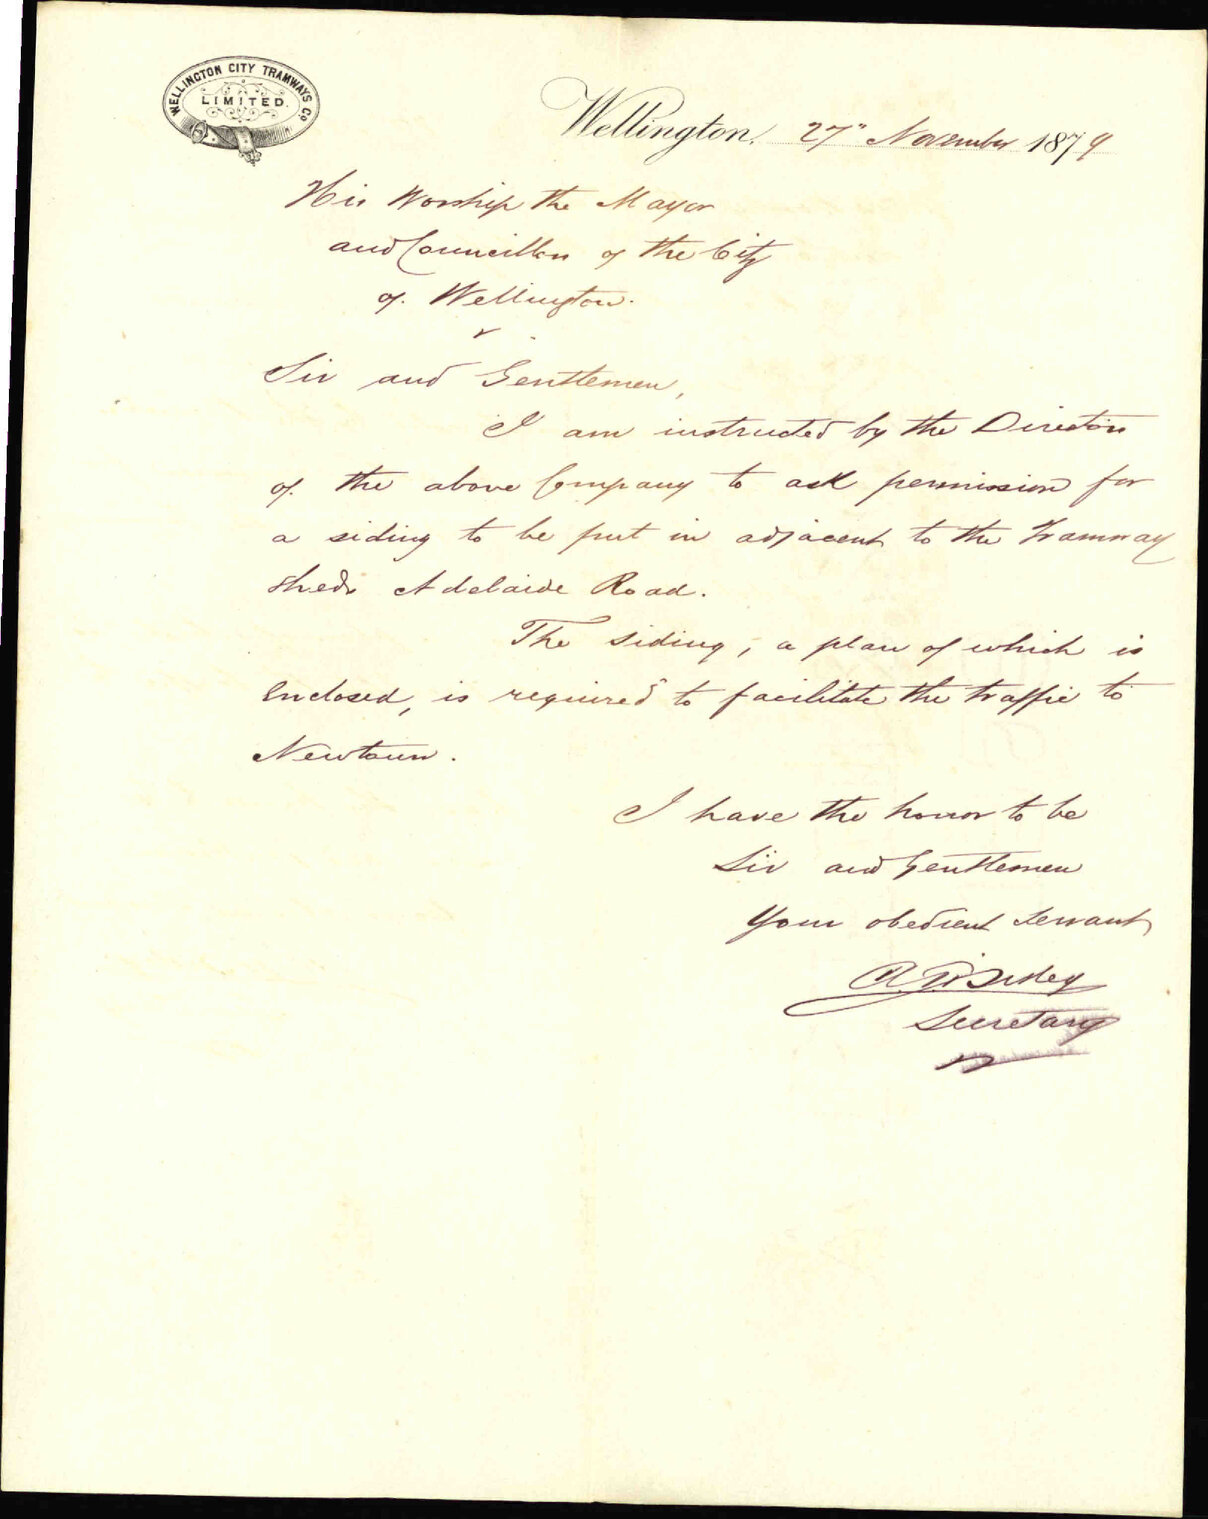 WELLINGTON CITY TRAMWAYS CO
LIMITED.
Wellington, 27" November 1879
His Worship the Mayor
and Councillors of the City
of Wellington.
Sir and Gentlemen,
I am instructed by the Directors
of the above Company to ask permission for
a siding to be put in adjacent to the Tramway
Sheds Adelaide Road.
The siding, a plan of which is
enclosed, is required to facilitate the traffic to
Newtown.
I have the honor to be
Sir and Gentlemen
Your obedient servant
Secretary